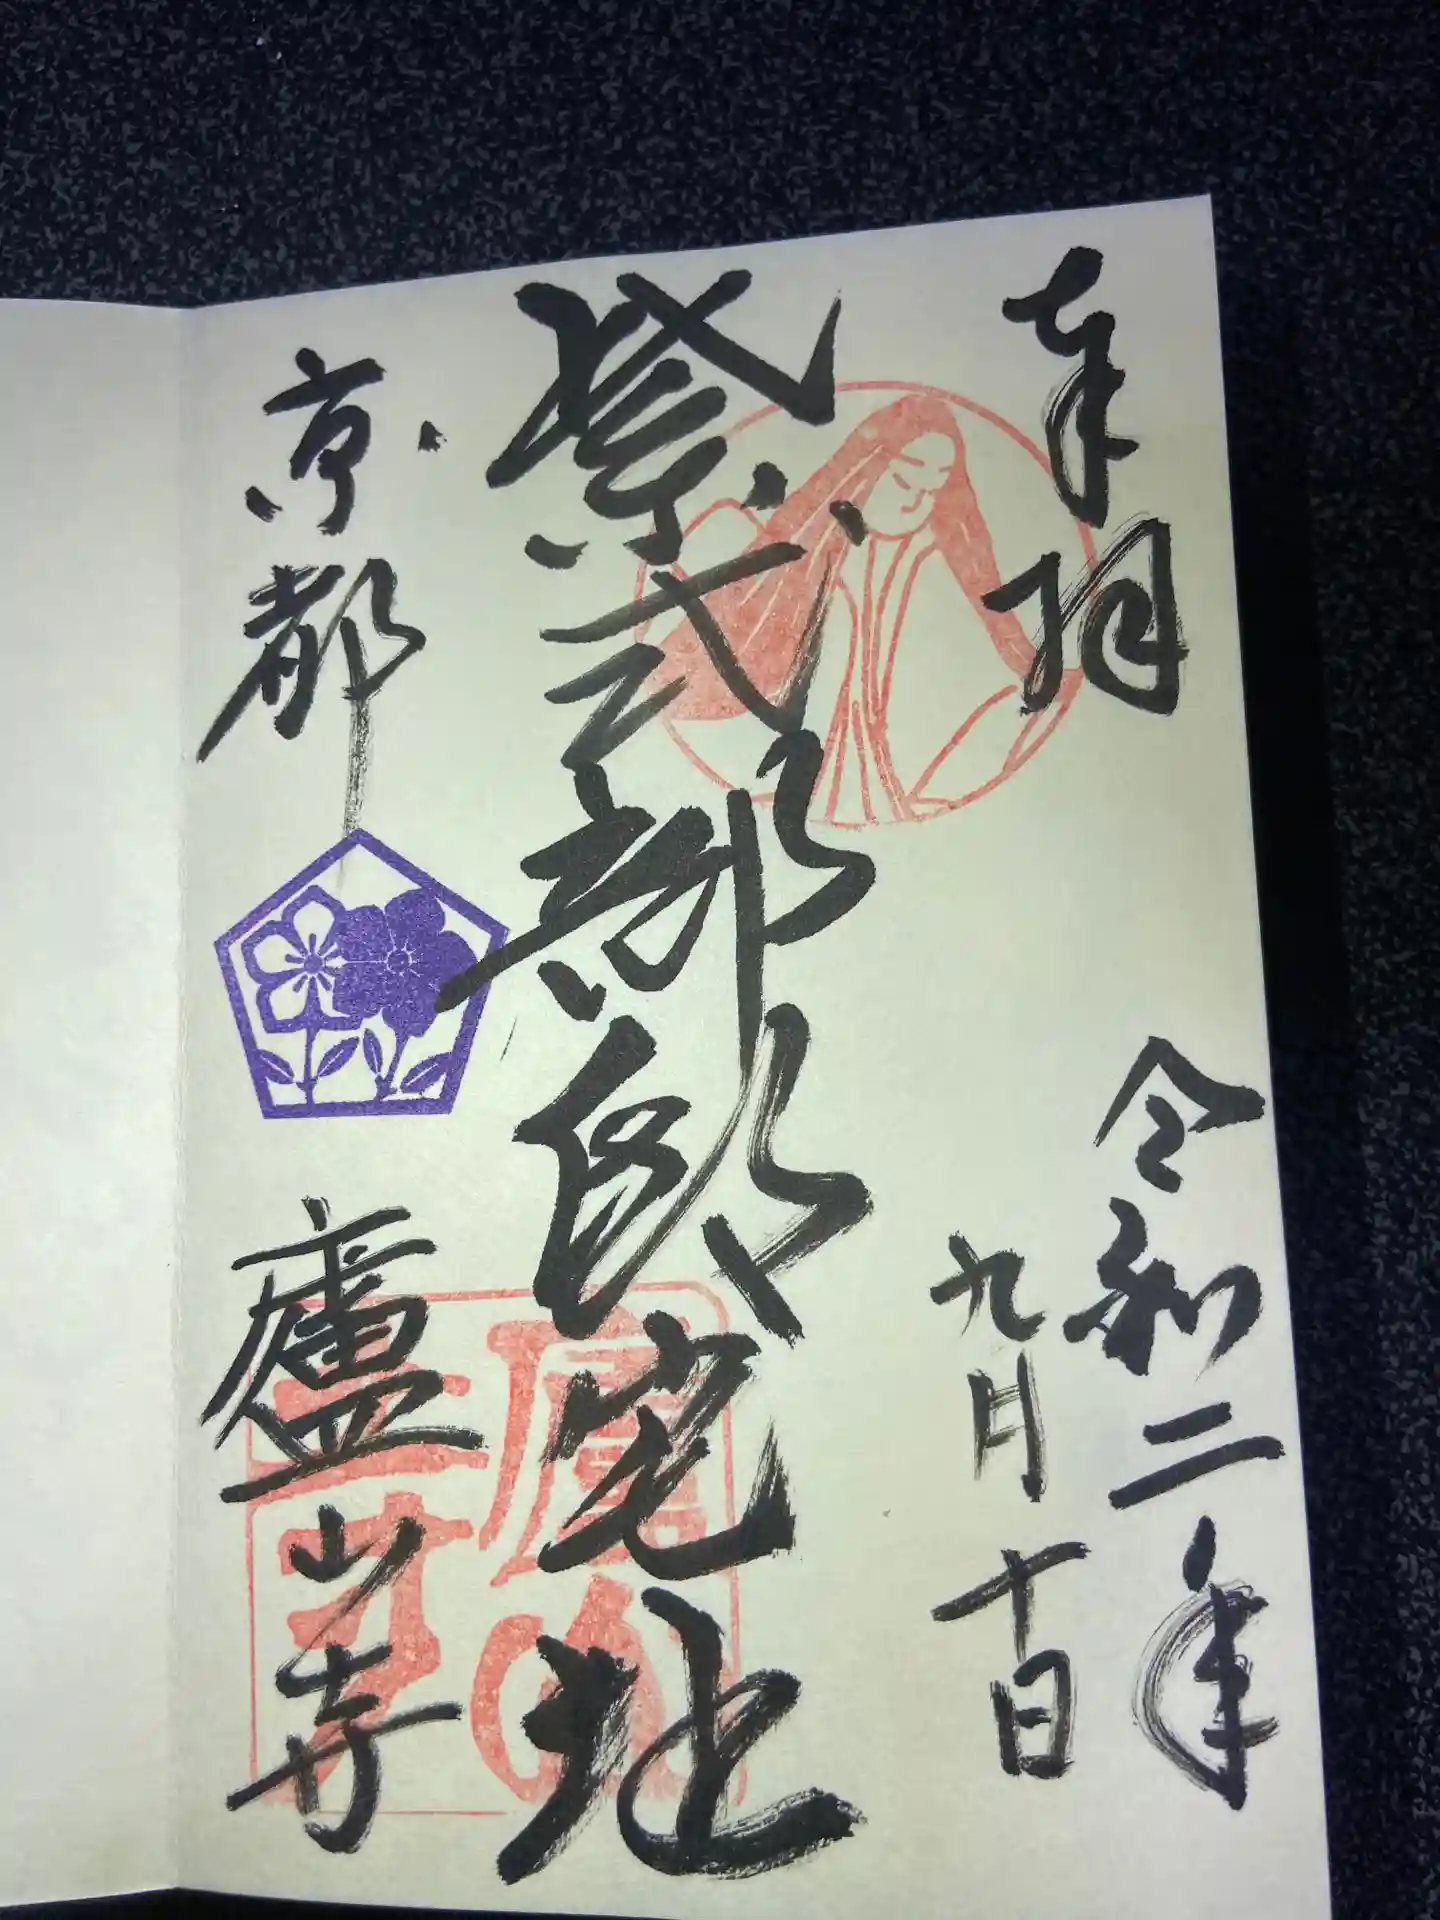 奉拝
令和二年
九月十日
紫式部邸宅址
京都
廬山寺
廬山寺